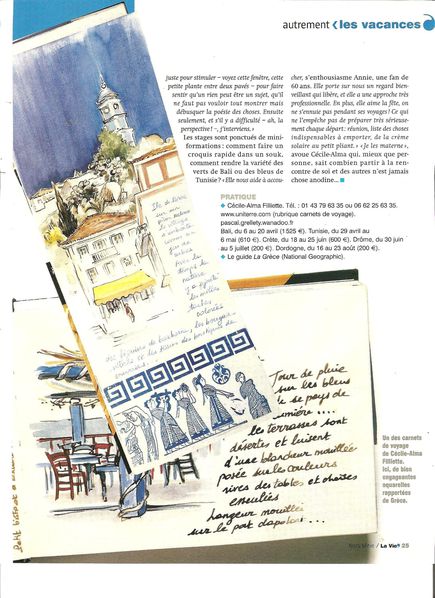 autrement ❬ les vacances
juste pour stimuler – voyez cette fenêtre, cette
petite plante entre deux pavés – pour faire
sentir qu'un rien peut être un sujet, qu'il
ne faut pas vouloir tout montrer mais
débusquer la poésie des choses. Ensuite
seulement, et s'il y a difficulté – ah, la
perspective ! –, j'interviens. »
Les stages sont ponctués de mini-
formations : comment faire un
croquis rapide dans un souk,
comment rendre la variété des
verts de Bali ou des bleus de
Tunisie ? « Elle nous aide à accou-
cher, s'enthousiasme Annie, une fan de
60 ans. Elle porte sur nous un regard bien-
veillant qui libère, et elle a une approche très
professionnelle. En plus, elle aime la fête, on
ne s'ennuie pas pendant ses voyages ! Ce qui
ne l'empêche pas de préparer très sérieuse-
ment chaque départ : réunion, liste des choses
indispensables à emporter, de la crème
solaire au petit pliant. » « Je les materne »,
avoue Cécile-Alma qui, mieux que person-
ne, sait combien partir à la rencontre
de soi et des autres n'est jamais
chose anodine... ■
PRATIQUE
◆ Cécile-Alma Filliette. Tél. : 01 43 79 63 35 ou 06 62 25 63 35.
www.uniterre.com (rubrique carnets de voyage).
pascal.grellety.wanadoo.fr
Bali, du 6 au 20 avril (1 525 €). Tunisie, du 29 avril au
6 mai (610 €). Crète, du 18 au 25 juin (600 €). Drôme, du 30 juin
au 5 juillet (200 €). Dordogne, du 16 au 23 août (200 €).
◆ Le guide La Grèce (National Geographic).
Jour de pluie
sur les bleus
le pays de
lumière....
les terrasses sont
désertes et luisent
d'une blancheur mouillée
posée sur les couleurs
vives des tables et chaises
esseulées
Langueur mouillée
sur le port
Un des carnets
de voyage
de Cécile-Alma
Filliette.
Ici, de bien
engageantes
aquarelles
rapportées
de Grèce.
Hors série / La Vie 25